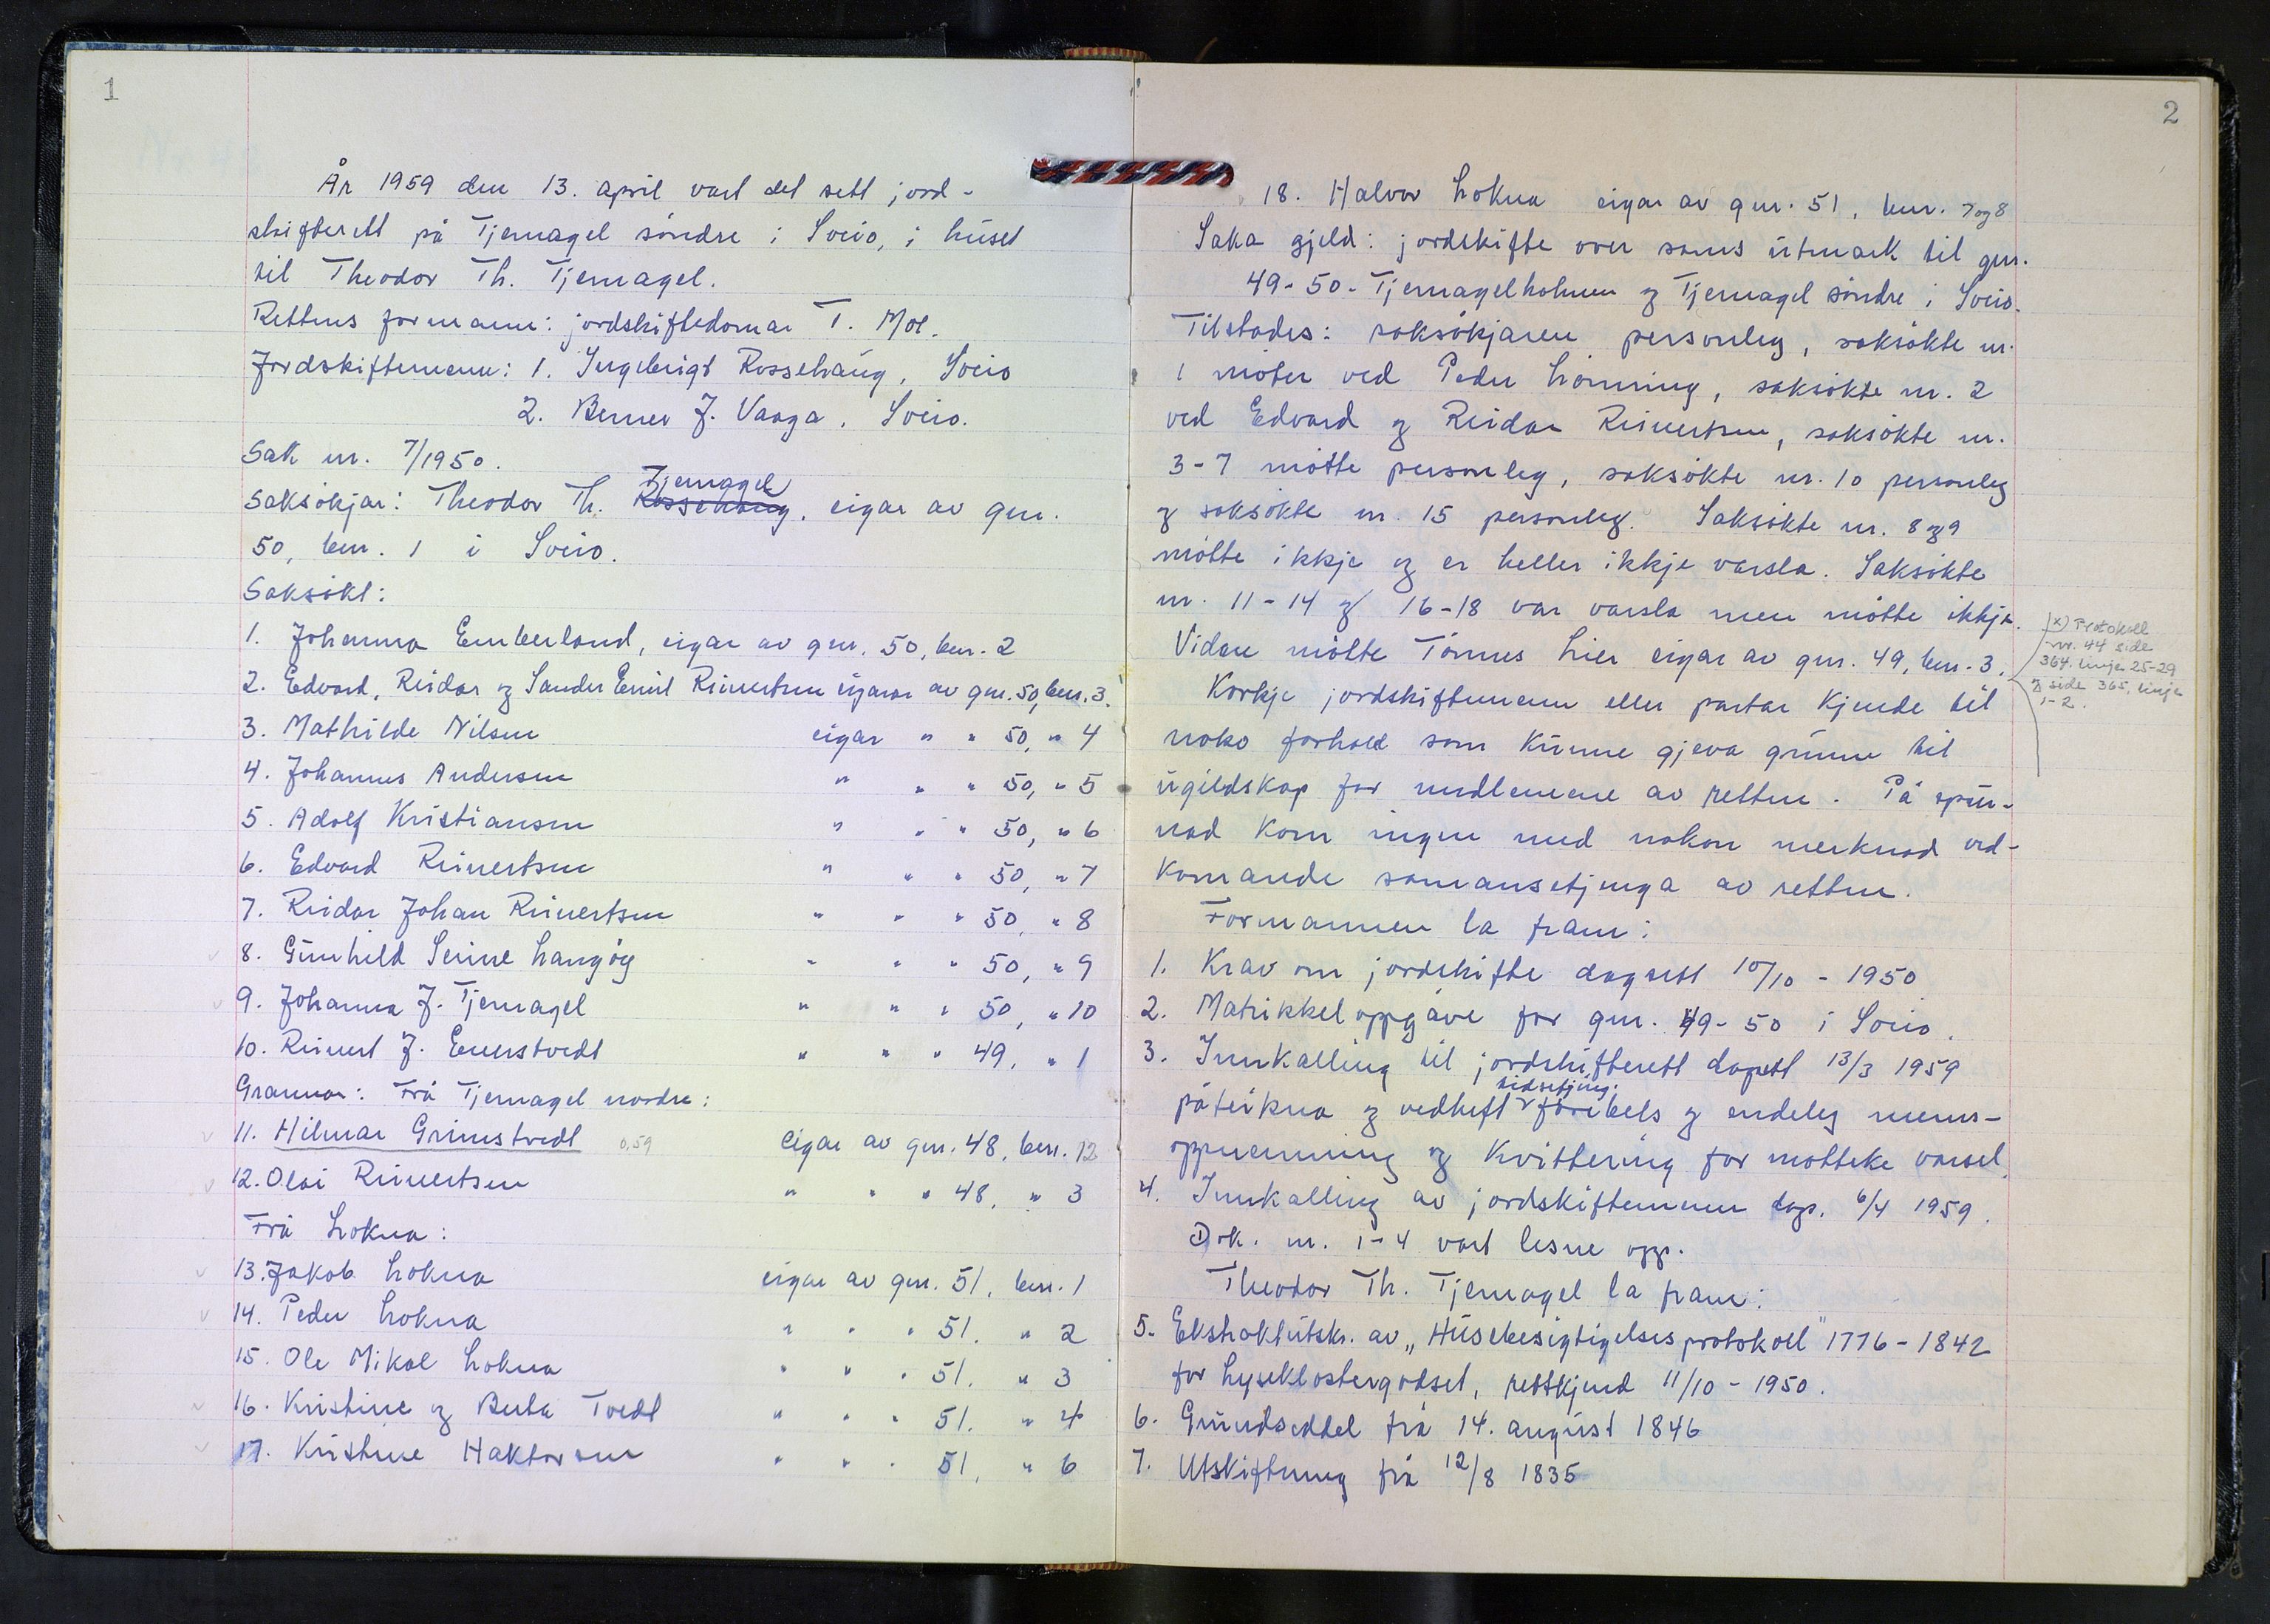 1
År 1959 den 13. april vart det sett jord-
skifterett på Tjernagel søndre i Sveio, i huset
til Theodor Th. Tjernagel.
Rettens formann: jordskiftedomar T. Moe.
Jordskiftemenn: 1. Ingebrigt Rossehaug, Sveio
2. Berner J. Vaaga, Sveio.
Sak nr. 7/1950.
Tjernagel
Saksøkjar: Theodor Th. Rossehaug, eigar av gnr.
50, bnr. 1 i Sveio.
Saksøkt:
1. Johanna Emberland, eigar av gnr. 50, bnr. 2
2. Edvard, Reidar og Sander Emil Reinertsen eigarar av gnr. 50, bnr. 3.
3. Mathilde Nilsen eigar " " 50, " 4
4. Johannes Andersen " " " 50, " 5
5. Adolf Kristiansen " " " 50, " 6
6. Edvard Reinertsen " " " 50, " 7
7. Reidar Johan Reinertsen " " " 50, " 8
8. Gunhild Senine Langøy " " " 50, " 9
9. Johanna J. Tjernagel " " " 50, " 10
10. Reinert J. Enerstvedt " " " 49, " 1
Grannar: Frå Tjernagel nordre:
11. Hilmar Grimstvedt 0,59 eigar av gnr. 48, bnr. 12
12. Olai Reinertsen " " " 48, " 3
Frå Lokna:
13. Jakob Lokna eigar av gnr. 51, bnr. 1
14. Peder Lokna " " " 51. " 2
15. Ole Mikal Lokna " " " 51. " 3
16. Kristine og Berta Tvedt " " " 51. " 4
17. Kristine Haktorsen " " " 51, " 6
2
18. Halvor Lokna eigar av gnr. 51, bnr. 7 og 8
Saka gjeld: jordskifte over sams utmark til gnr.
49-50 - Tjernagelholmen og Tjernagel søndre i Sveio.
Tilstades: saksøkjaren personleg, saksøkte nr.
1 møter ved Peder Lønning, saksøkte nr. 2
ved Edvard og Reidar Reinertsen, saksøkte nr.
3-7 møtte personleg, saksøkte nr. 10 personleg
og saksøkte nr. 15 personleg. Saksøkte nr. 8 og 9
møtte ikkje og er heller ikkje varsla. Saksøkte
nr. 11-14 og 16-18 var varsla men møtte ikkje.
Vidare møtte Tønnes Lier eigar av gnr. 49, bnr. 3.
x) Protokoll
nr. 44 side
364. linje 25-29
og side 365, linje
1-2.
Korkje jordskiftemenn eller partar kjende til
noko forhold som kunne gjeva grunn til
ugildskap for medlemene av retten. På spur-
nad kom ingen med nokon merknad ved-
komande samansetjinga av retten.
Formannen la fram:
1. Krav om jordskifte dagsett 10/10 - 1950
2. Matrikkeloppgåve for gnr. 49-50 i Sveio.
3. Innkalling til jordskifterett dagsett 13/3 1959
tidsetjing.
påteikna og vedheft førebels og endeleg menns-
oppnemning og kvittering for motteke varsel.
4. Innkalling av jordskiftemenn dags. 6/4 1959.
Dok. nr. 1-4 vart lesne opp.
Theodor Th. Tjernagel la fram:
5. Ekstraktutskr. av „Husebesigtigelsesprotokoll" 1776-1842
for Lyseklostergodset, rettkjend 11/10 - 1950.
6. Grunnsettel frå 14. august 1846
7. Utskiftning frå 12/8 1835